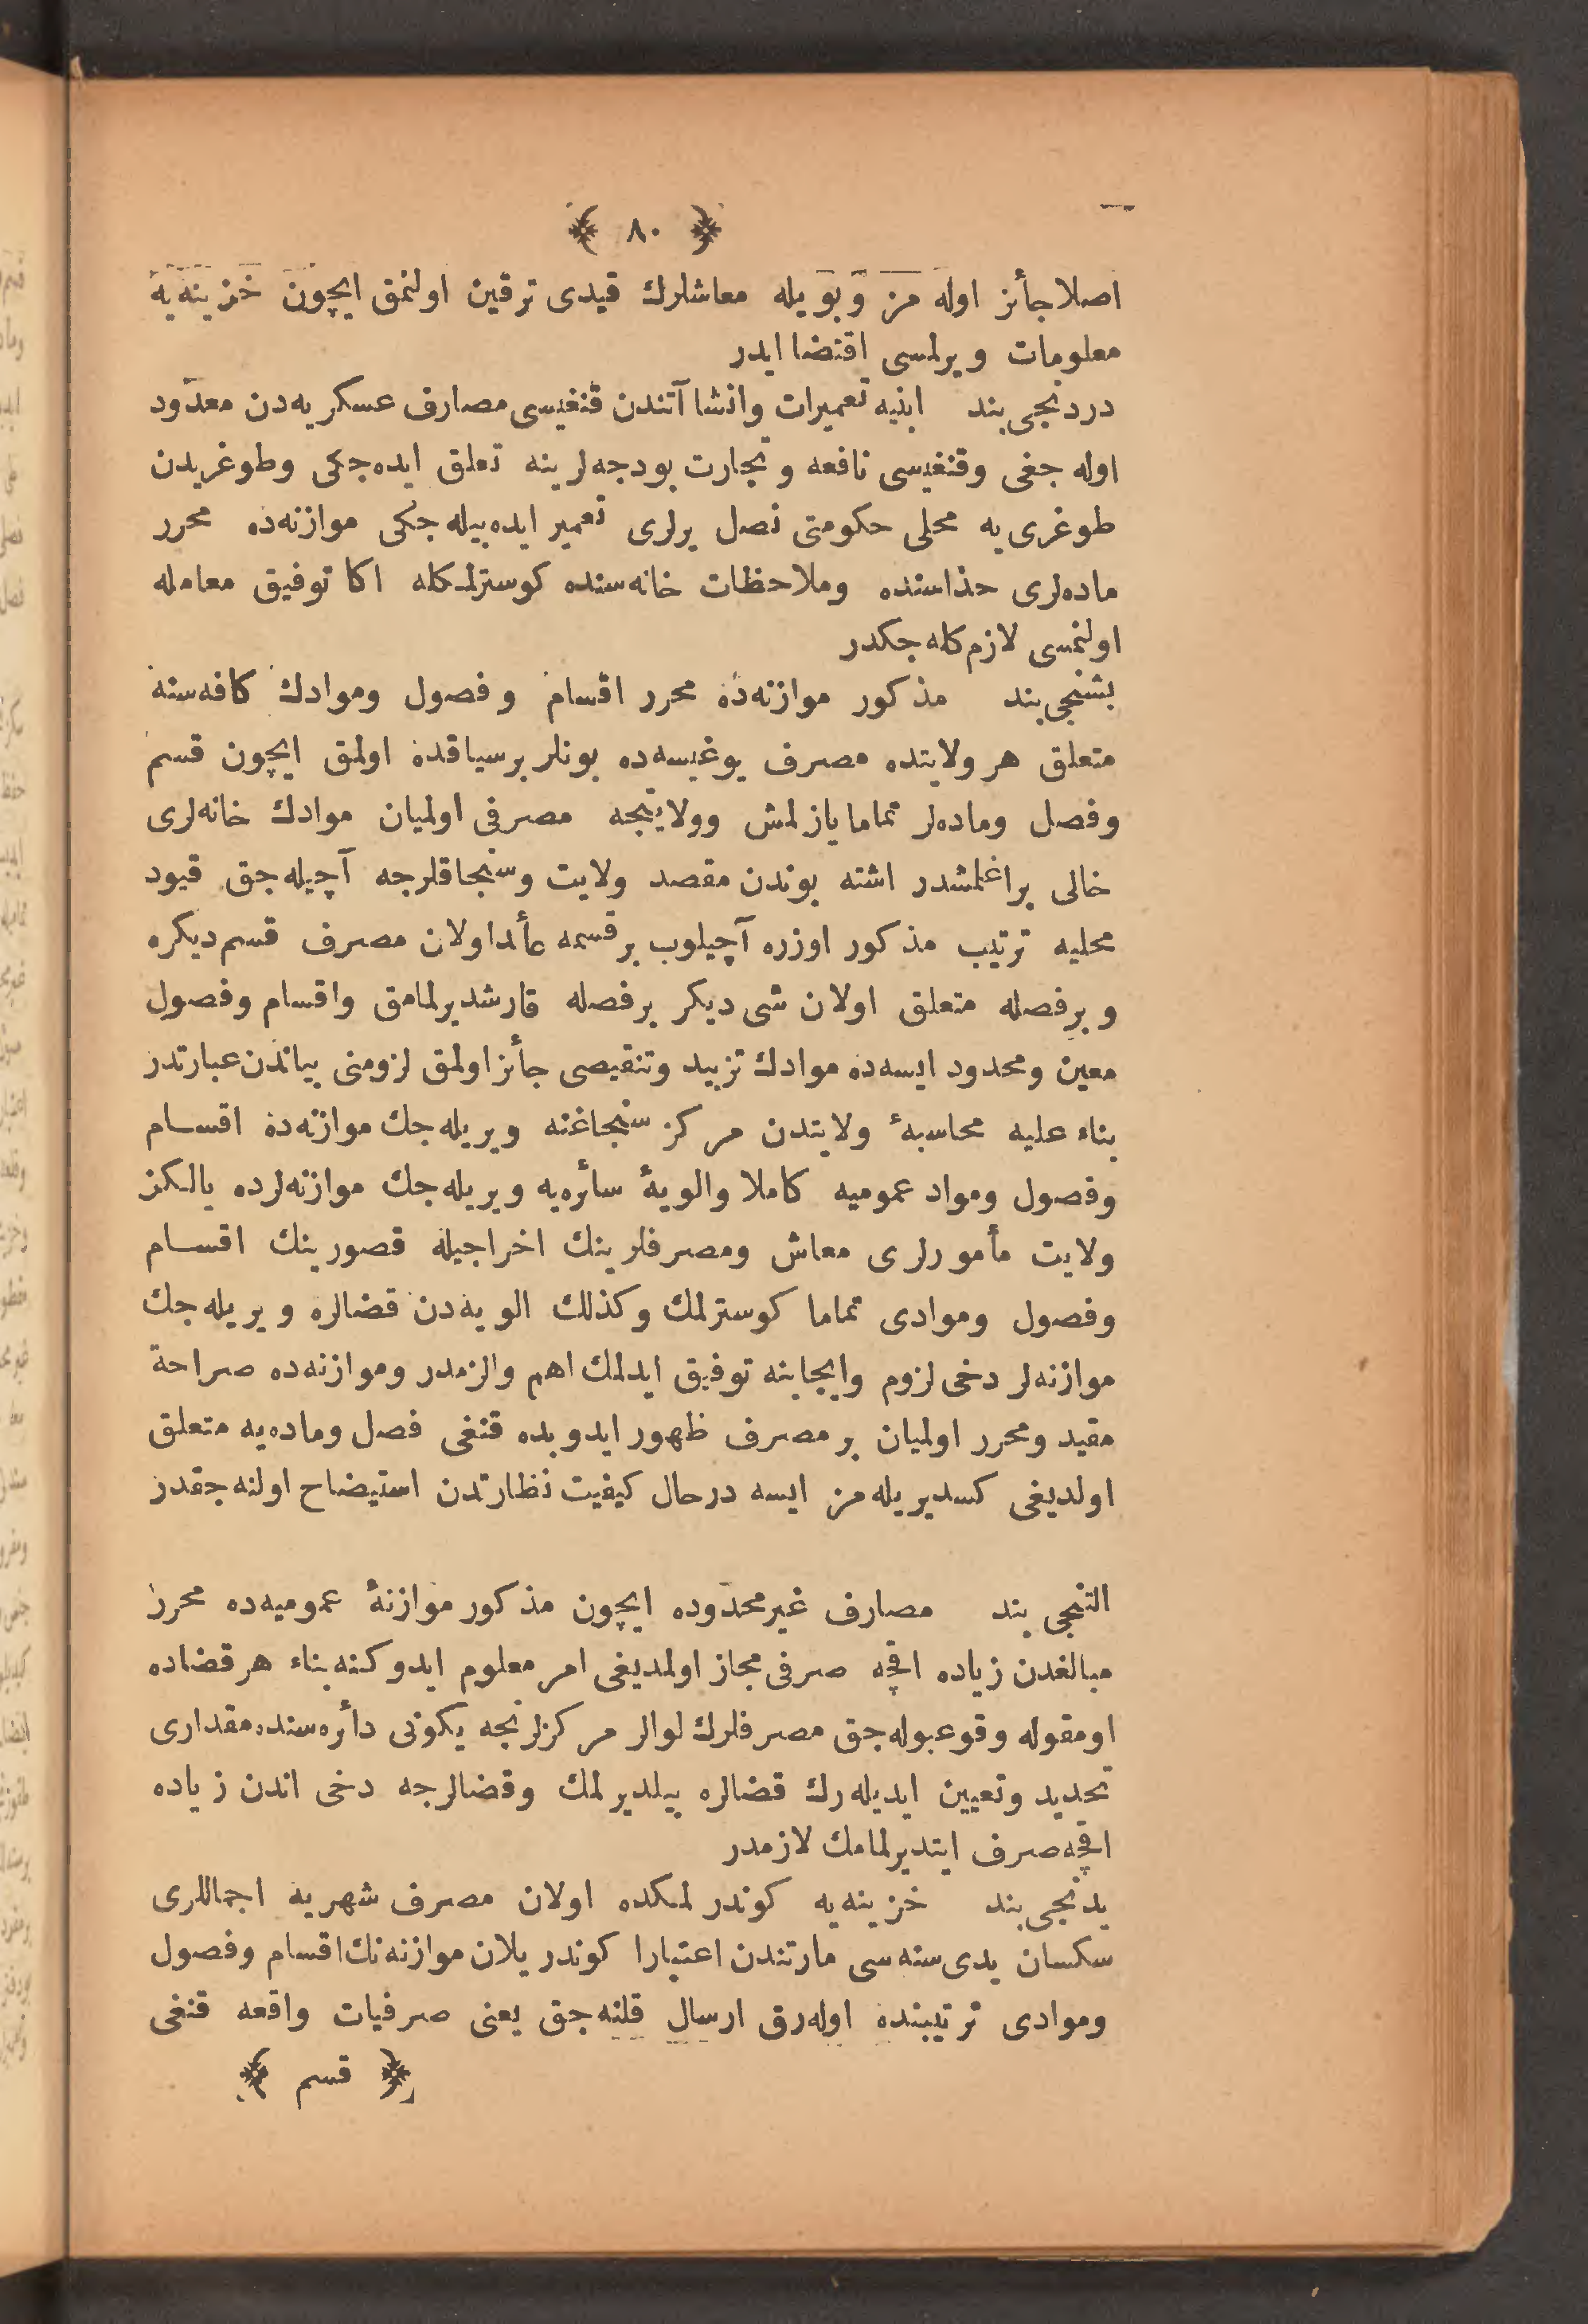 ﴿ ٨٠ ﴾
اصلا جأئز اوله‌مز وبویله معاشلرك قیدی ترقین اولنمق ایچون خزینه‌یه
معلومات ویرلمسی اقتضا ایدر
دردنجی بند ابنیه تعمیرات وانشاآتندن قنغیسی مصارف عسکریه‌دن معدود
اوله جغی وقنغیسی نافعه وتجارت بودجه‌لرینه تعلق ایده‌جکی وطوغریدن
طوغری یه محلی حکومتی نصل یرلری تعمیر ایده‌بیله‌جکی موازنه‌ده محرر
ماده‌لری حذاسنده وملاحظات خانه‌سنده کوسترلمکله اکا توفیق معامله
اولنمسی لازم کله‌جکدر
بشنجی بند مذکور موازنه‌ده محرر اقسام وفصول وموادك کافه‌سنه
متعلق هر ولایتده مصرف یوغیسه‌ده بونلر برسیاقده اولمق ایچون قسم
وفصل وماده‌لر تماما یازلمش وولایتجه مصرفی اولمیان موادك خانه‌لری
خالی براغلمشدر اشته بوندن مقصد ولایت وسنجاقلرجه آچیله‌جق قیود
محلیه ترتیب مذکور اوزره آچیلوب برقسمه عأئد اولان مصرف قسم دیکره
و برفصله متعلق اولان شی دیکر برفصله قارشدیرلمامق واقسام وفصول
معین ومحدود ایسه‌ده موادك تزیید وتنقیصی جأئز اولمق لزومنی بیاندن عبارتدر
بناء علیه محاسبهٔ ولایتدن مرکز سنجاغنه ویریله‌جك موازنه‌ده اقسام
وفصول ومواد عمومیه کاملا والویهٔ سأئره‌یه ویریله‌جك موازنه‌لرده یالکز
ولایت مأمورلری معاش ومصرفلرینك اخراجیله قصورینك اقسام
وفصول وموادی تماما کوسترلمك وکذلك الویه‌دن قضالره ویریله‌جك
موازنه‌لر دخی لزوم وایجابنه توفیق ایدلمك اهم والزمدر وموازنه‌ده صراحة
مقید ومحرر اولمیان بر مصرف ظهور ایدوبده قنغی فصل وماده‌یه متعلق
اولدیغی کسدیریله‌مز ایسه درحال کیفیت نظارتدن استیضاح اولنه‌جقدر
التنجی بند مصارف غیرمحدوده ایچون مذکور موازنهٔ عمومیه‌ده محرر
مبالغدن زیاده اقچه صرفی مجاز اولمدیغی امر معلوم ایدوکنه بناء هر قضاده
اومقوله وقوعبوله‌جق مصرفلرك لوالر مرکزلرنجه یکونی دأئره‌سنده مقداری
تحدید وتعیین ایدیله‌رك قضالره بیلدیرلمك وقضالرجه دخی اندن زیاده
اقچه صرف ایتدیرلمامك لازمدر
یدنجی بند خزینه‌یه کوندرلمکده اولان مصرف شهریه اجماللری
سکسان یدی سنه‌سی مارتندن اعتبارا کوندریلان موازنه‌نك اقسام وفصول
وموادی ترتیبنده اوله‌رق ارسال قلنه‌جق یعنی صرفیات واقعه قنغی
﴿ قسم ﴾